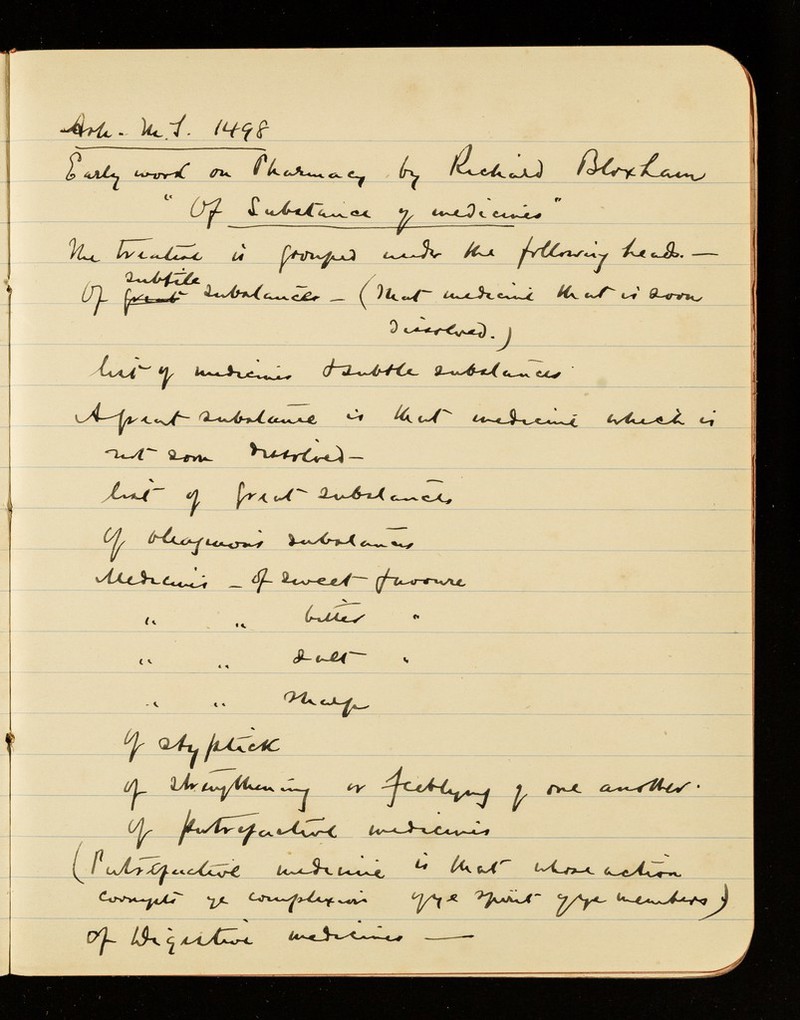 Ash. M.S. 1498
Early word on Pharmacy by Richard Bloxham
"Of Substance of medicines"
The treatise is grouped under the following heads. —
Of great subtile substances — (that medicine that is soon
dissolved.)
list of medicines subtle substances
A great substance is that medicine which is
not soon dissolved —
list of great substances
of oleaginous substances
Medicines — of sweet savoure
" " bitter "
" " salt "
" " sharp
of styptick
of strengthening or feeblyng of one another.
of putrefactive medicines
(Putrefactive medicine is that whose action
corrupts ye complexion of ye spirit of ye members)
of Digestive medicines —